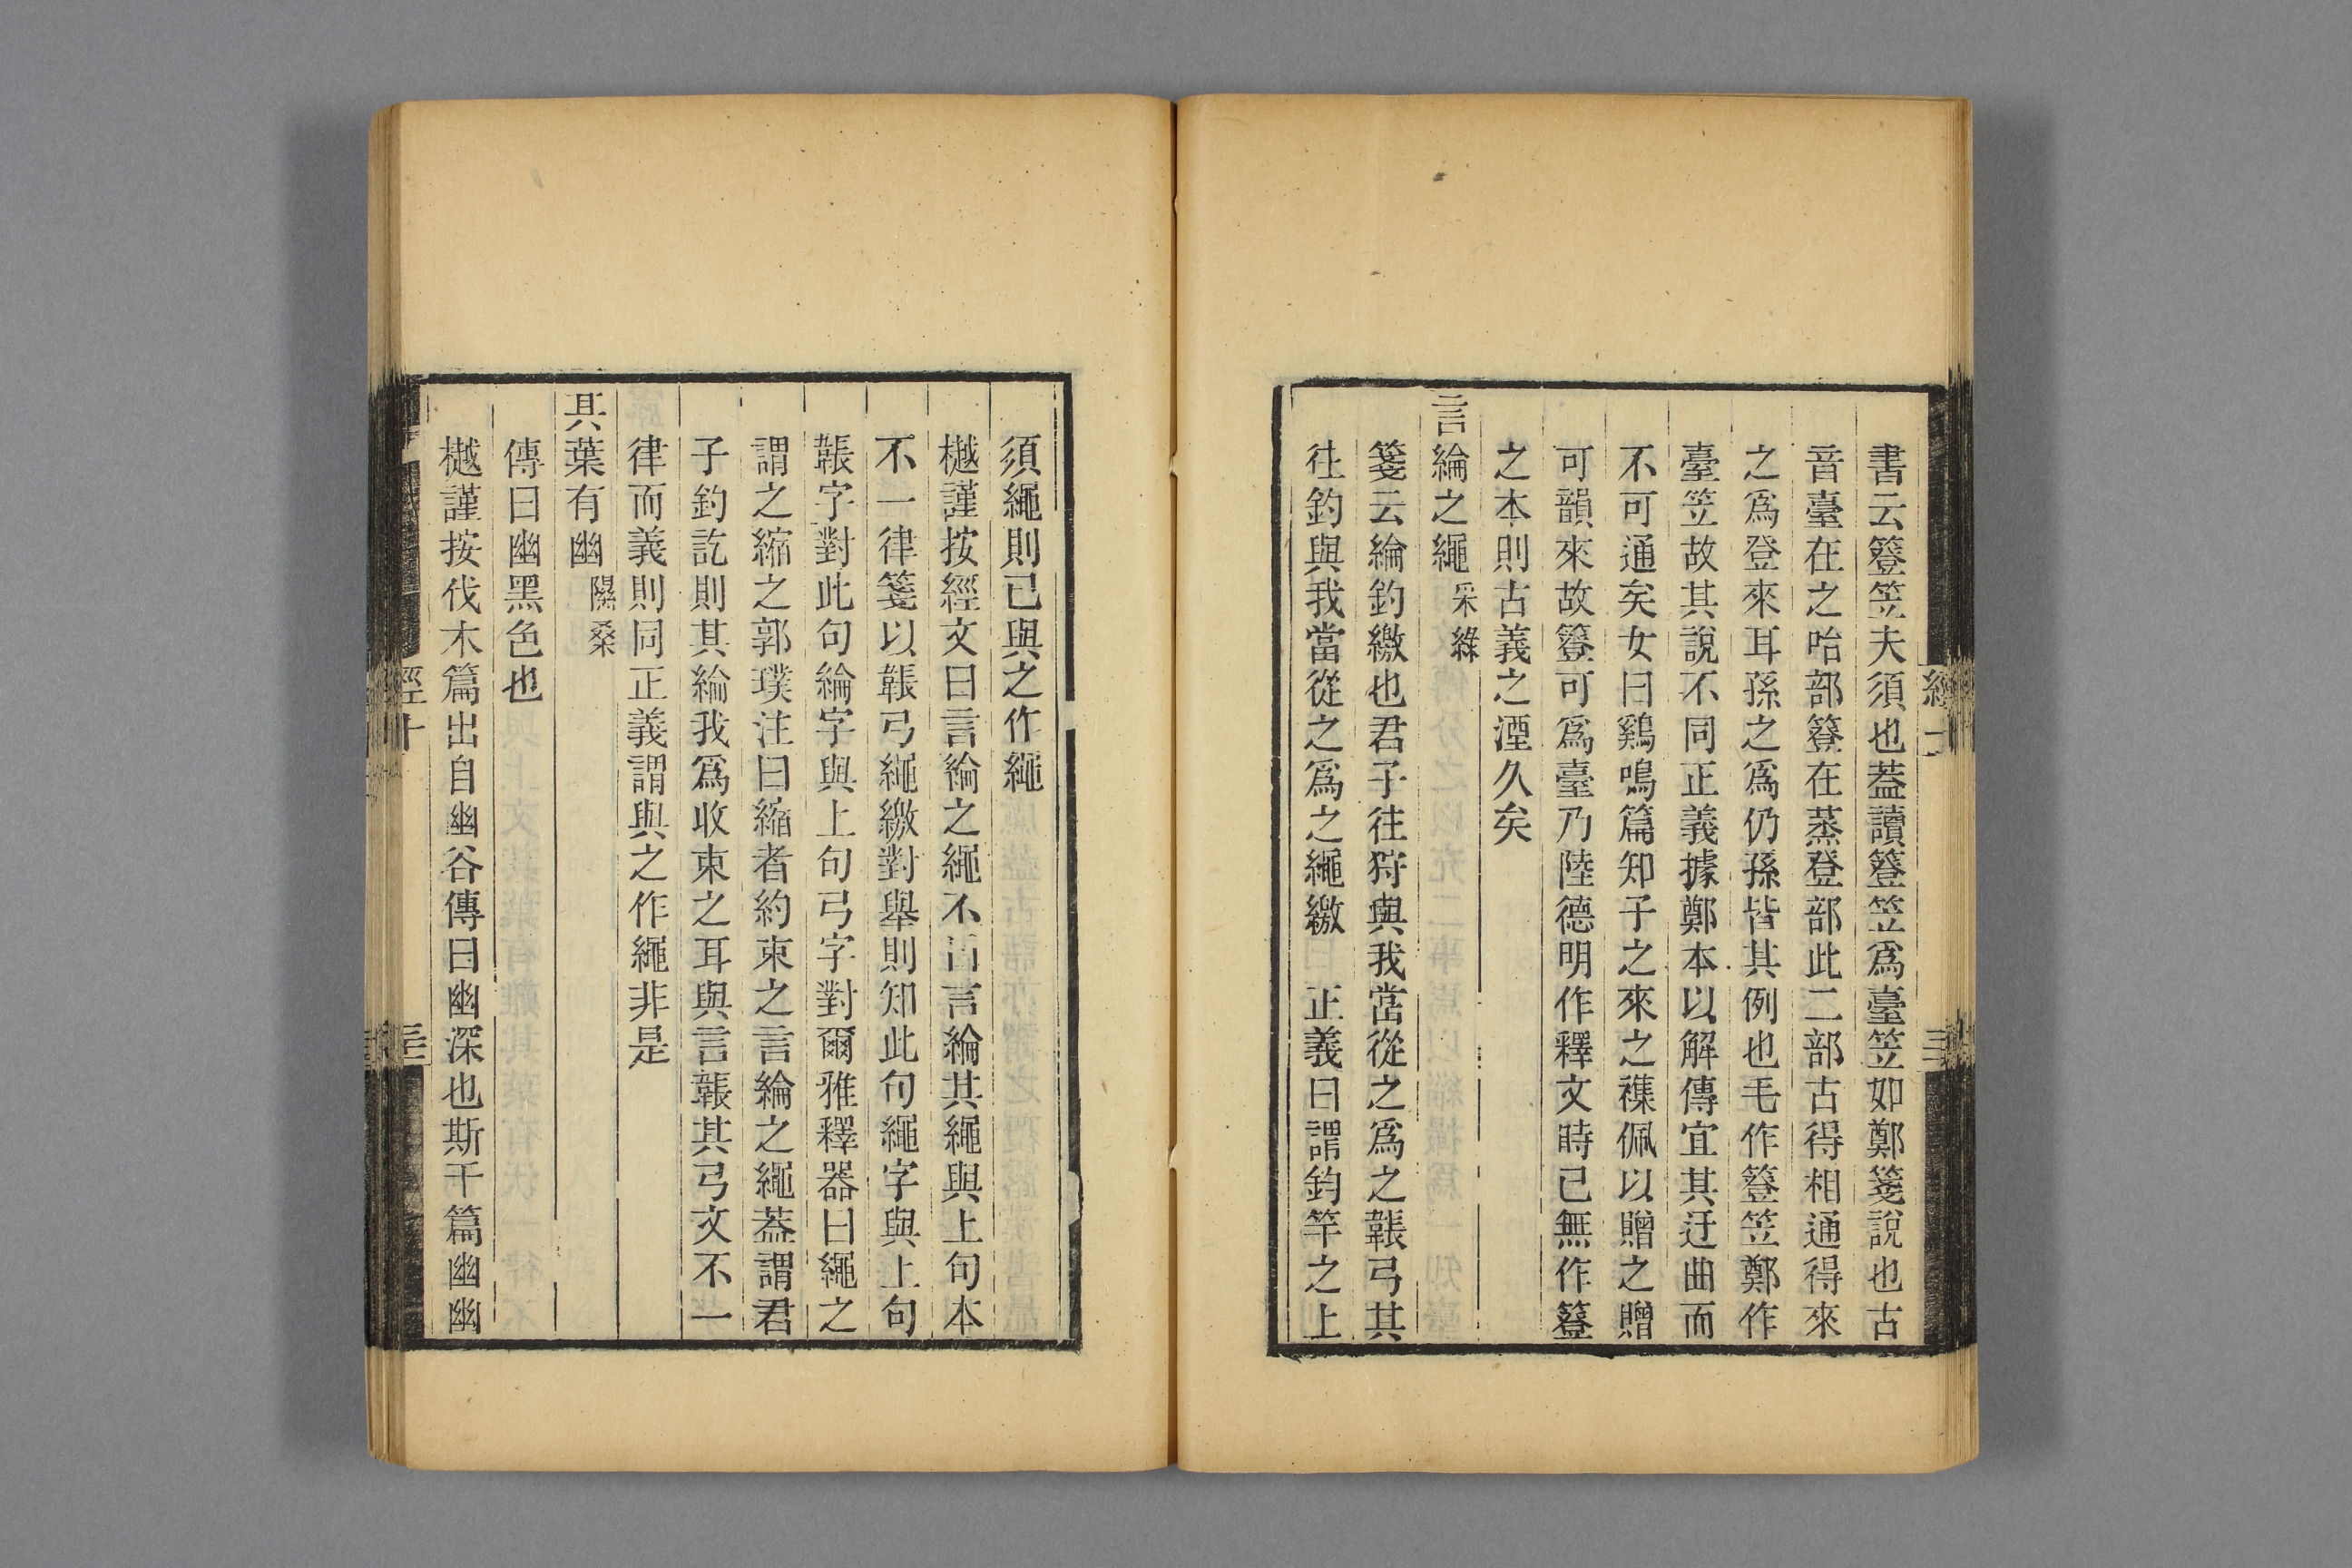 書云簦笠夫須也葢讀簦笠爲臺笠如鄭箋說也古
音臺在之咍部簦在蒸登部此二部古得相通得來
之爲登來耳孫之爲仍孫皆其例也毛作簦笠鄭作
臺笠故其說不同正義據鄭本以解傳宜其迂曲而
不可通矣女曰鷄鳴篇知子之來之襍佩以贈之贈
可韻來故簦可爲臺乃陸德明作釋文時已無作簦
之本則古義之湮久矣
言綸之繩采綠
箋云綸釣繳也君子往狩與我當從之爲之韔弓其
往釣與我當從之爲之繩繳 正義曰謂釣竿之上
須繩則已與之作繩
樾謹按經文曰言綸之繩不曰言綸其繩與上句本
不一律箋以韔弓繩繳對舉則知此句繩字與上句
韔字對此句綸字與上句弓字對爾雅釋器曰繩之
謂之縮之郭璞注曰縮者約束之言綸之繩葢謂君
子釣訖則其綸我爲收束之耳與言韔其弓文不一
律而義則同正義謂與之作繩非是
其葉有幽隰桑
傳曰幽黑色也
樾謹按伐木篇出自幽谷傳曰幽深也斯干篇幽幽
經十